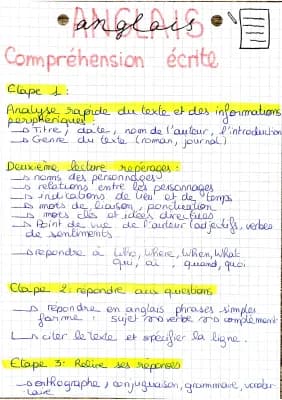 ANGLAIS
anglais
Compréhension écrite
Etape 1 :
Analyse rapide du texte et des informations
périphériques :
→ Titre, date, nom de l'auteur, l'introduction
→ Genre du texte (roman, journal)
Deuxième lecture repérages :
→ noms des personnages
→ relations entre les personnages
→ indications de lieu et de temps
→ mots de liaison, ponctuation
→ mots clés et idées directrices
→ Point de vue de l'auteur (adjectifs, verbes
de sentiments
→ répondre à Who, Where, When, What
qui, où, quand, quoi
Etape 2 : répondre aux questions
→ répondre en anglais phrases simples
forme : sujet → verbe → complément
→ citer le texte et spécifier la ligne.
Etape 3 : Relire ses réponses
→ orthographe, conjugaison, grammaire, vocabu-
laire